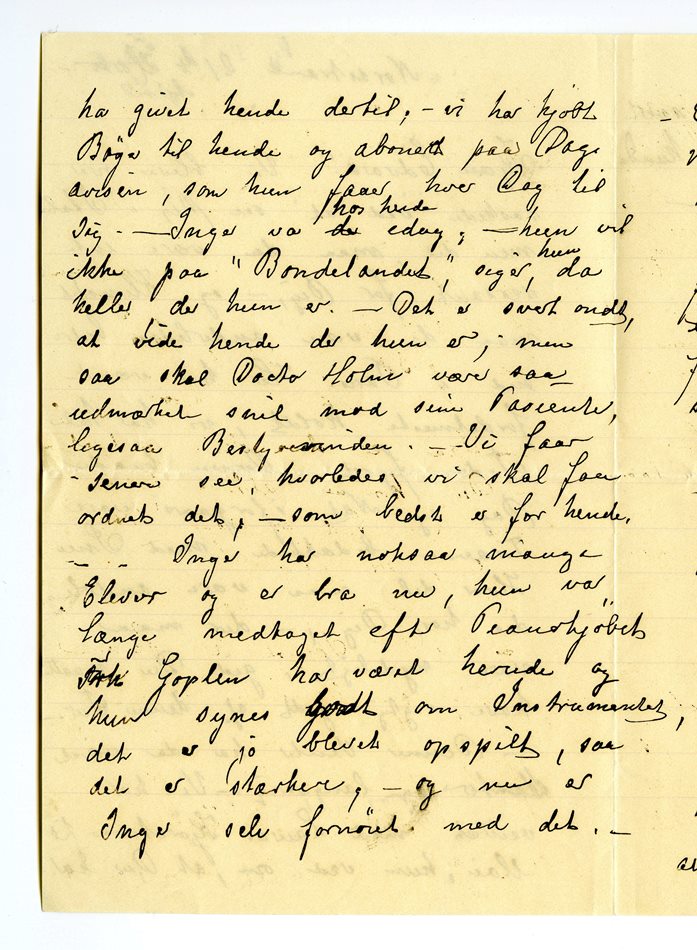 ha givet hende dertil, – vi har kjøbt
Bøger til hende og abonert paa Dag-
avisen, som hun faaer hver Dag til
sig. – Inger va hos hende idag, – hun vil
ikke paa "Bondelandet", siger hun, da
heller der hun er. – Det er svert ondt,
at vide hende der hun er, men
saa skal Docto Holm være saa
udmærket snil mod sine Pasienter,
legesaa Bestyrerinden. – Vi faar
senere see, hvorledes vi skal faa
ordnet det, – som bedst er for hende.
– „ Inger har noksaa mange
Elever og er bra nu, hun var
længe medtaget efter Pianokjøbet
Frk Goplen har været herude og
hun synes godt om Instrumentet,
det er jo blevet opspilt, saa
det er stærkere, – og nu er
Inger selv fornøiet med det. –